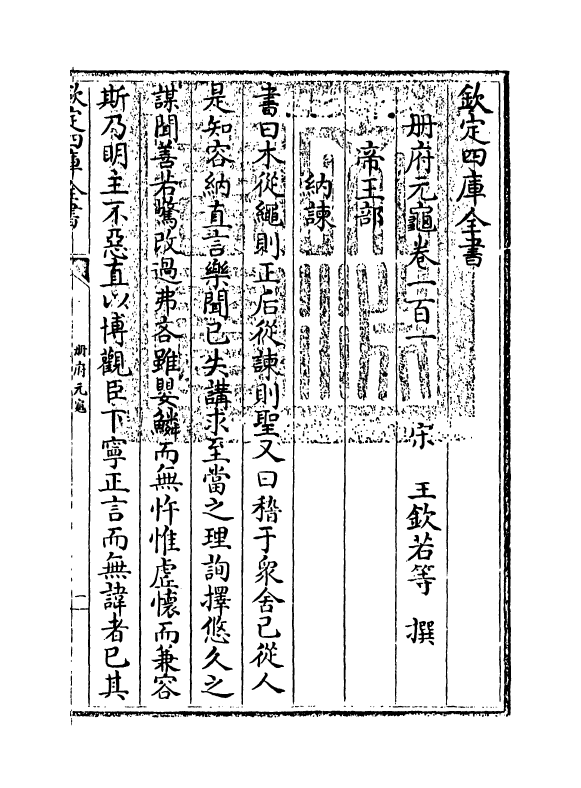 欽定四庫全書
冊府元龜卷一百一
宋 王欽若等 撰
帝王部
納諫
書曰木從繩則正后從諫則聖又曰稽于衆舍已從人
是知容納直言樂聞已失講求至當之理詢擇悠久之
謀聞善若驚改過弗吝雖嬰鱗而無忤惟虛懷而兼容
斯乃明主不惡直以博觀臣下寧正言而無諱者已其
欽定四庫全書
冊府元龜
一